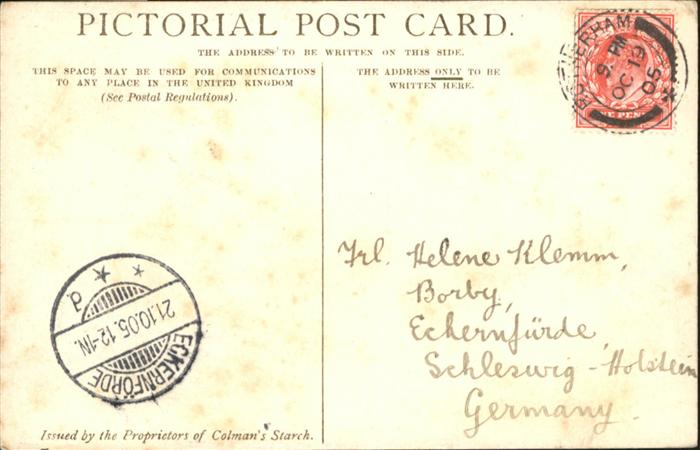 PICTORIAL POST CARD.
THE ADDRESS TO BE WRITTEN ON THIS SIDE.
THIS SPACE MAY BE USED FOR COMMUNICATIONS
TO ANY PLACE IN THE UNITED KINGDOM
(See Postal Regulations).
THE ADDRESS ONLY TO BE
WRITTEN HERE.
ROTHERHAM
9 PM
OC 19
05
ONE PENNY
Frl. Helene Klemm,
Borby,
Eckernfürde,
Schleswig-Holstein
Germany.
ECKERNFÖRDE
21.10.05.12-1N.
Issued by the Proprietors of Colman's Starch.